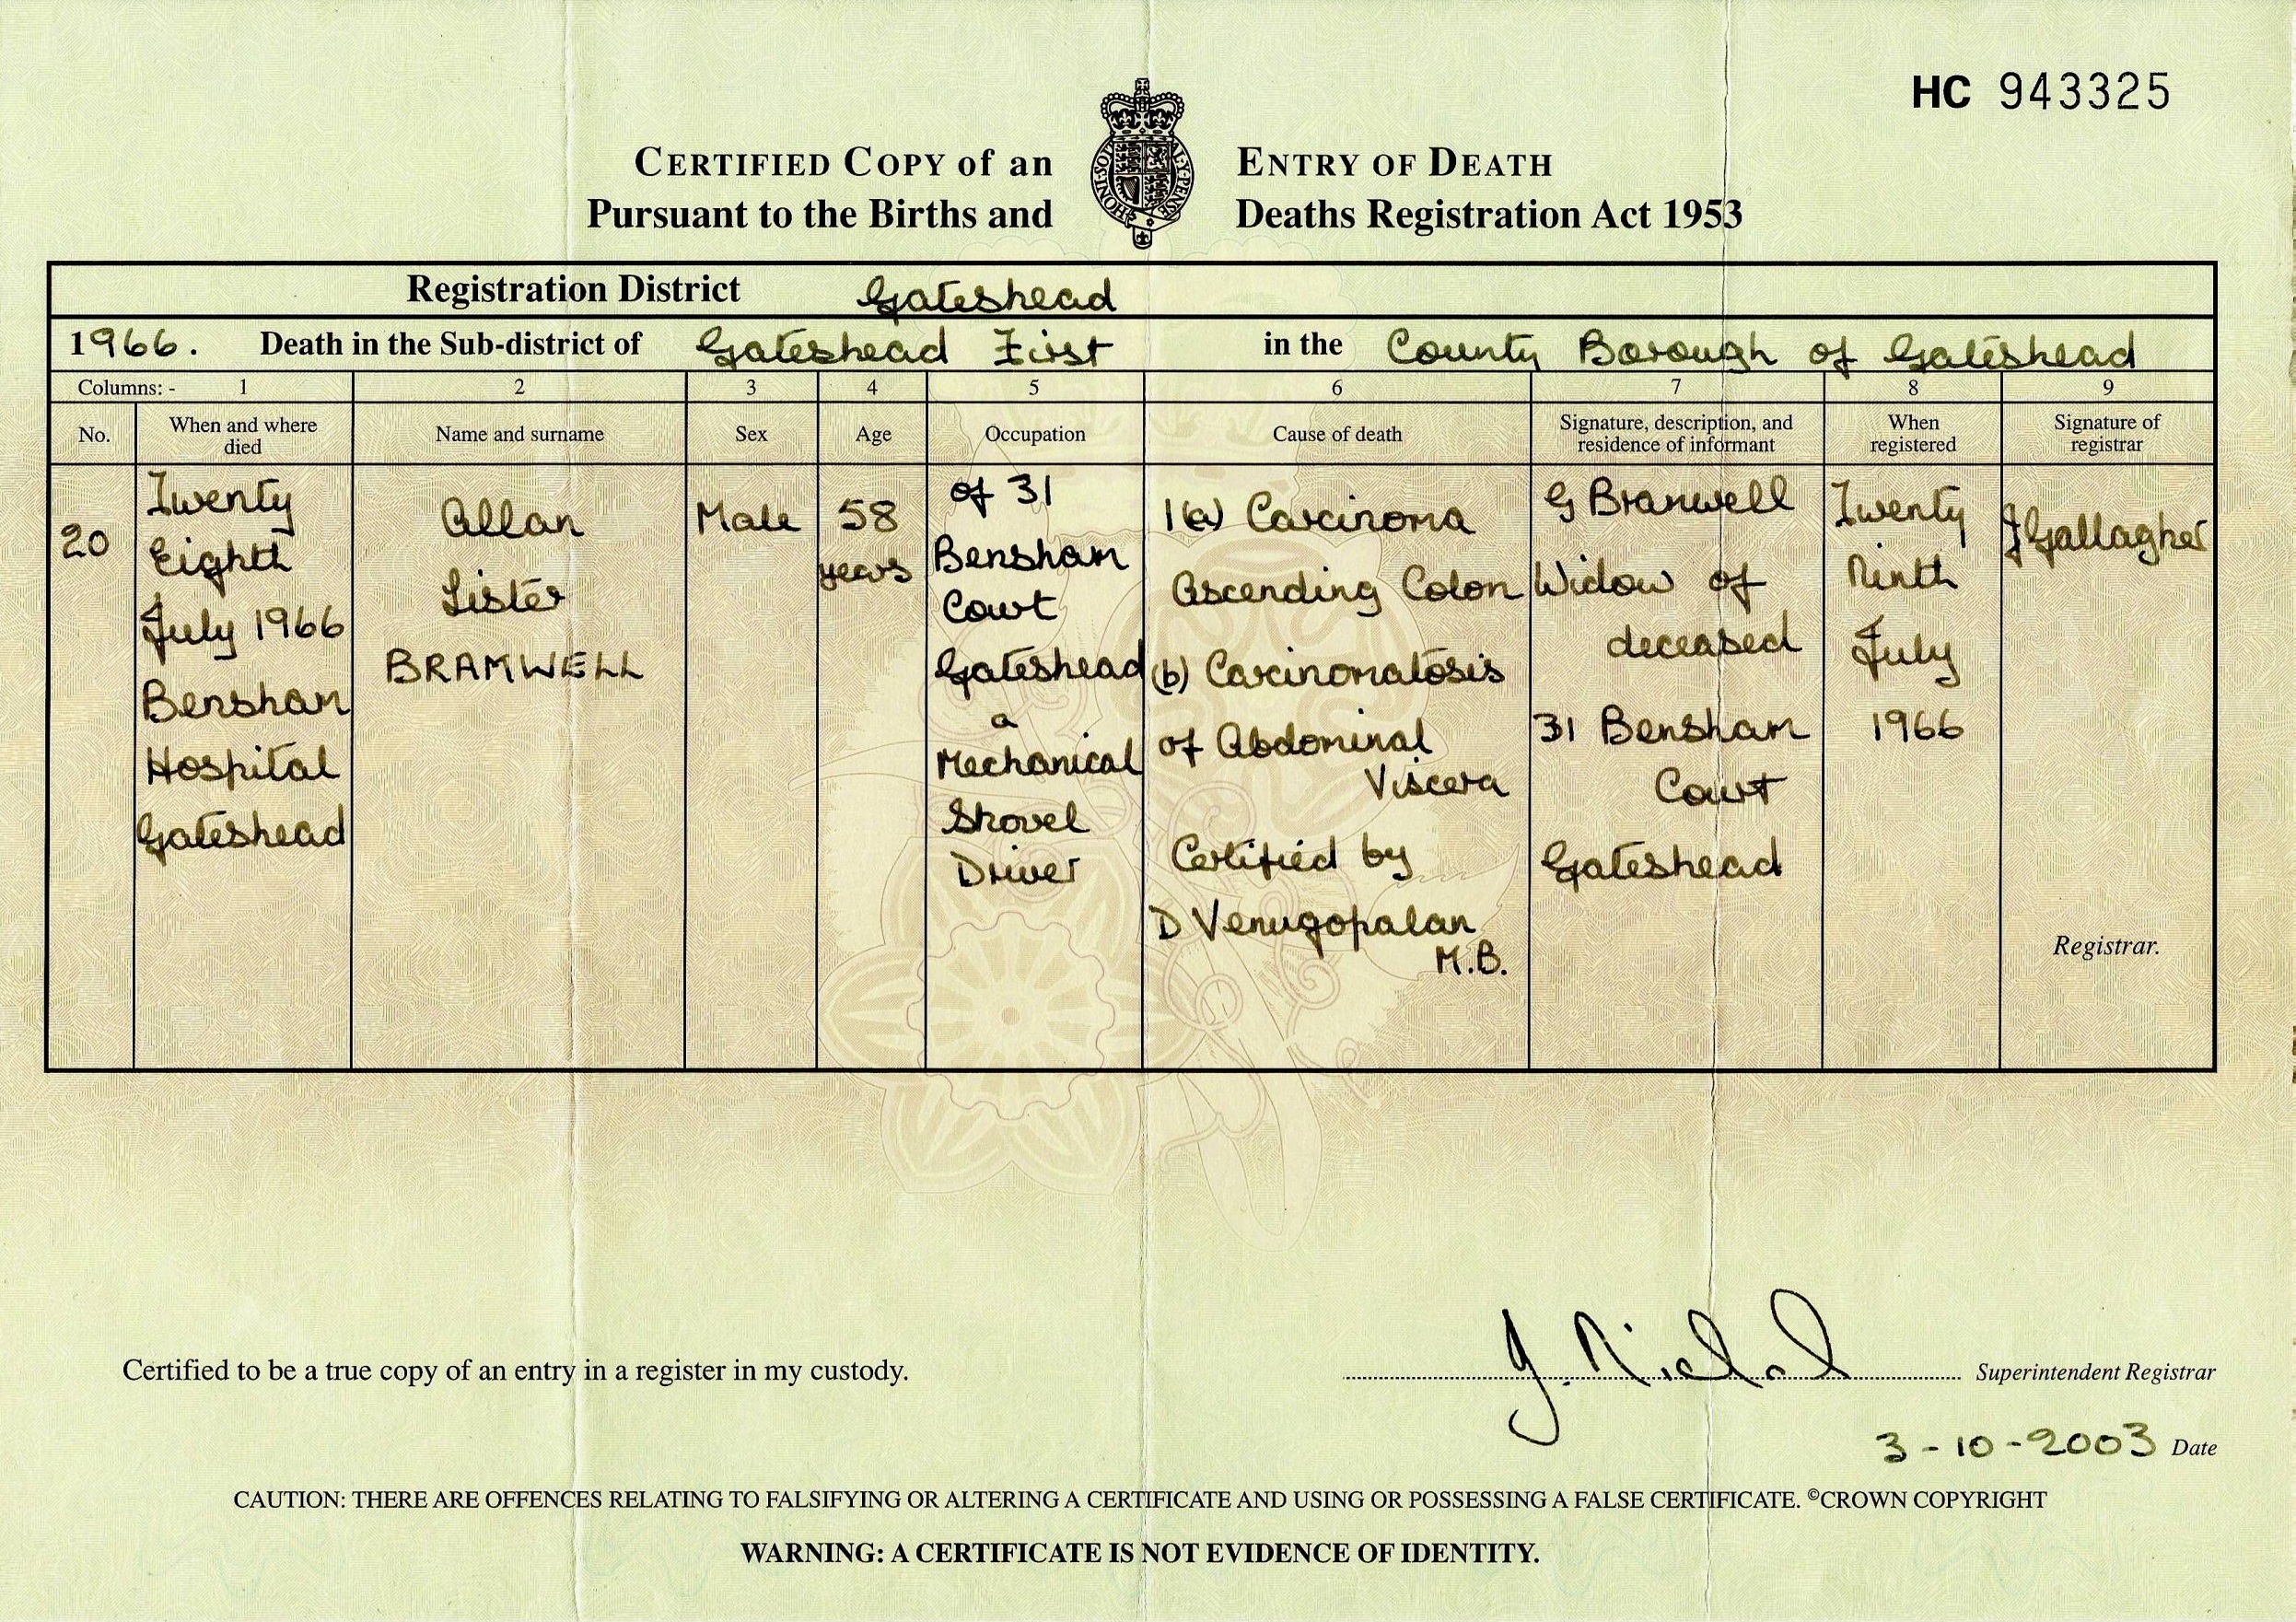 HC 943325
CERTIFIED COPY of an ENTRY OF DEATH
Pursuant to the Births and Deaths Registration Act 1953
HONI·SOIT
Registration District Gateshead
1966. Death in the Sub-district of Gateshead First in the County Borough of Gateshead
Columns: - 1 2 3 4 5 6 7 8 9
No.
When and where
died
Name and surname
Sex
Age
Occupation
Cause of death
Signature, description, and
residence of informant
When
registered
Signature of
registrar
20
Twenty
Eighth
July 1966
Bensham
Hospital
Gateshead
Allan
Lister
BRAMWELL
Male
58
years
of 31
Bensham
Court
Gateshead
a
Mechanical
Shovel
Driver
1(a) Carcinoma
Ascending Colon
(b) Carcinomatosis
of Abdominal
Viscera
Certified by
D Venugopalan
M.B.
G Bramwell
Widow of
deceased
31 Bensham
Court
Gateshead
Twenty
Ninth
July
1966
J Gallagher
Registrar.
Certified to be a true copy of an entry in a register in my custody.
J. Nichol Superintendent Registrar
3-10-2003 Date
CAUTION: THERE ARE OFFENCES RELATING TO FALSIFYING OR ALTERING A CERTIFICATE AND USING OR POSSESSING A FALSE CERTIFICATE. ©CROWN COPYRIGHT
WARNING: A CERTIFICATE IS NOT EVIDENCE OF IDENTITY.